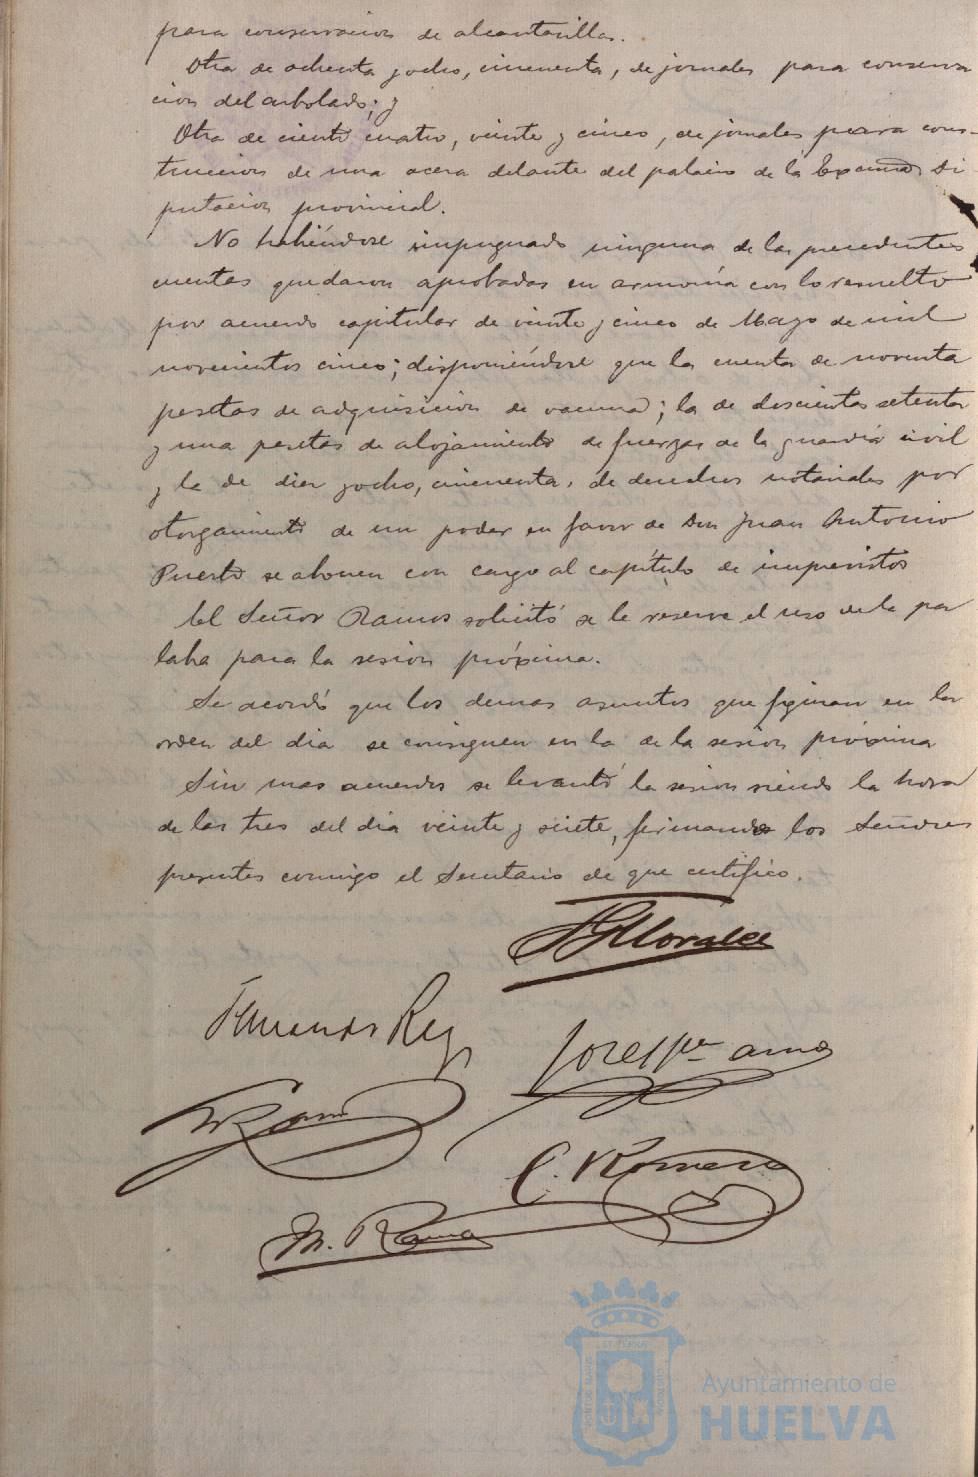 para conservacion de alcantarillas.
Otra de ochenta y ocho, cincuenta, de jornales para conserva
cion del arbolado; y
Otra de ciento cuatro, veinte y cinco, de jornales para cons-
truccion de una acera delante del palacio de la Excma Di
putacion provincial.
No habiéndose impugnado ninguna de las precedentes
cuentas quedaron aprobadas en armonía con lo resuelto
por acuerdo capitular de veinte y cinco de Mayo de mil
novecientos cinco; disponiéndose que la cuenta de noventa
pesetas de adquisicion de vacuna; la de doscientas setenta
y una pesetas de alojamiento de fuerzas de la guardia civil
y la de diez y ocho, cincuenta, de derechos notariales por
otorgamiento de un poder en favor de Don Juan Antonio
Puerto se abonen con cargo al capítulo de imprevistos
El Señor Ramos solicitó se le reserve el uso de la pa
labra para la sesion próxima.
Se acordó que los demas asuntos que figuran en la
orden del dia se consignen en la de la sesion próxima
Sin mas acuerdos se levantó la sesion siendo la hora
de las tres del dia veinte y siete, firmando los Señores
presentes conmigo el Secretario de que certifico.
Morales
Fernando Rey
C. Romero
M. Ramos
Ayuntamiento de
HUELVA